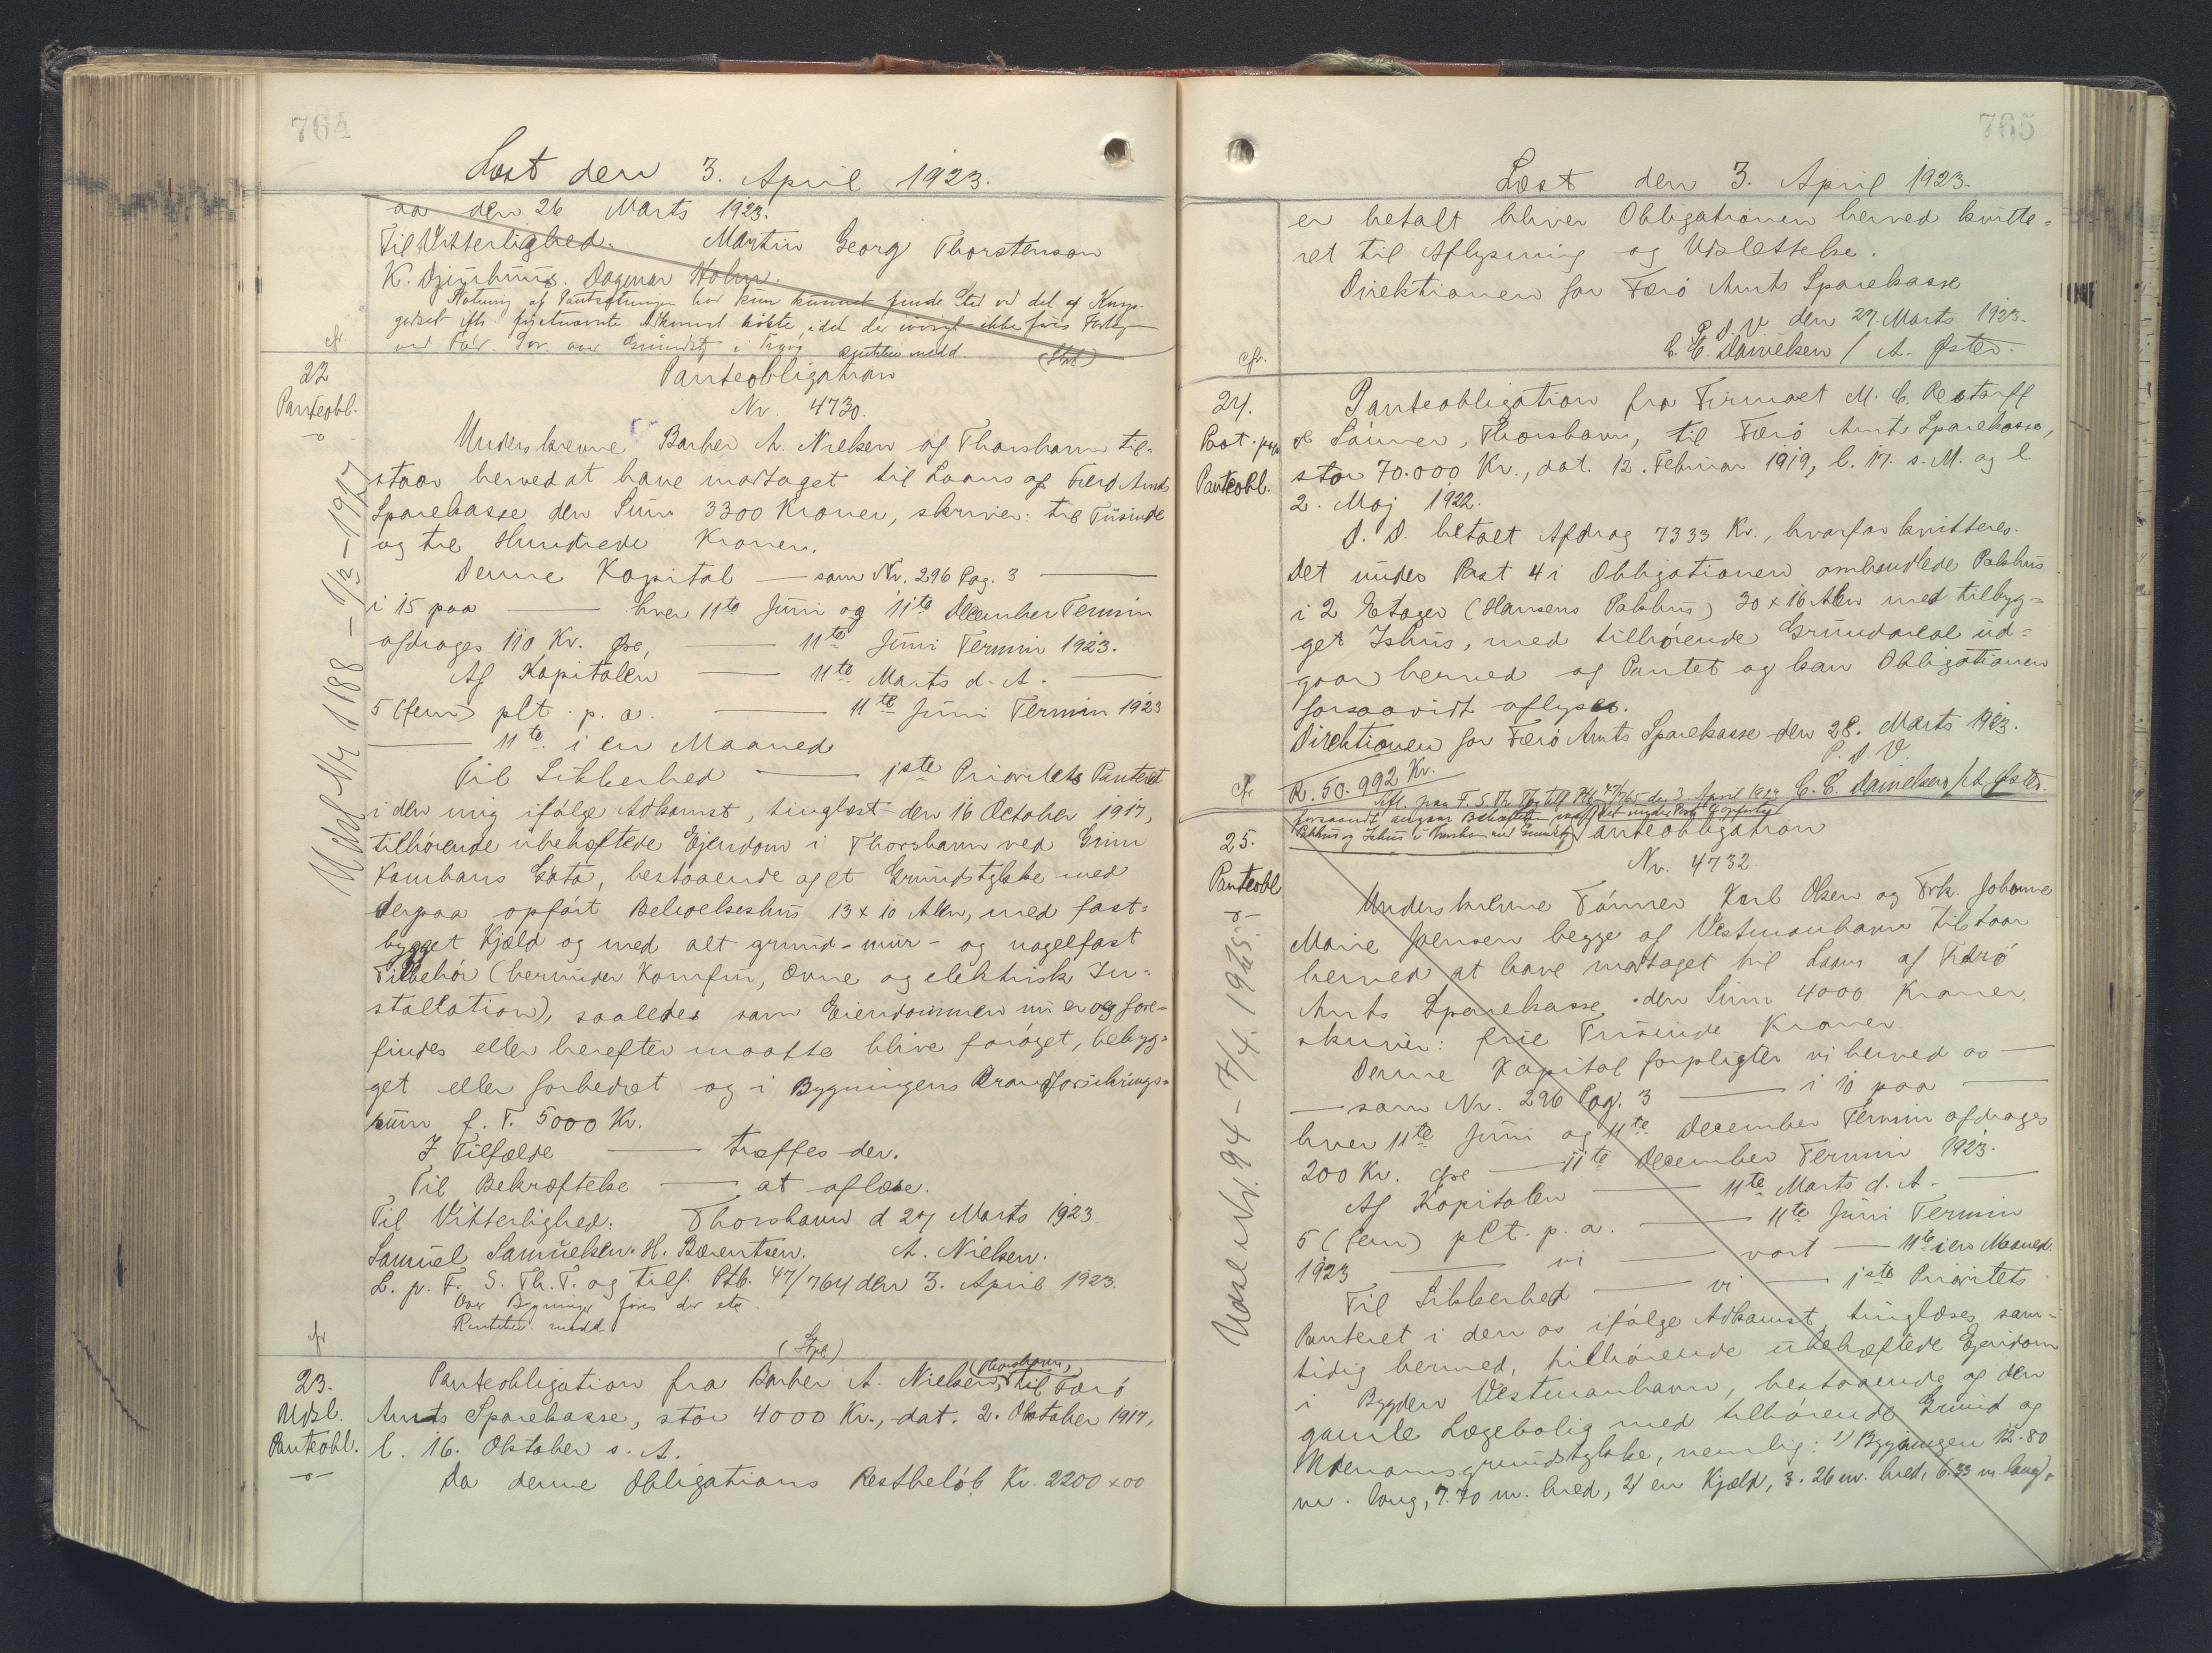 764
Læst den 3. April 1923.
aa den 26 Marts 1923.
Til Vitterlighed. Martin Georg Thorstenson
K. Djurhuus. Dagmar Holm.
Notering af Pantsætningen har kun kunnet finde Sted ved det af Kongs-
cfr.
(Stpl)
22
Panteobl.
Panteobligation
Nr. 4730.
Underskrevne Barber A. Nielsen af Thorshavn til-
staar herved at have modtaget til Laans af Færø Amts
Sparekasse den Sum 3300 Kroner, skriver: tre Tusinde
og tre Hundrede Kroner.
Denne Kapital — som Nr. 296 Pag. 3 —
i 15 paa — hver 11te Juni og 11te December Termin
afdrages 110 Kr. Øre, — 11te Juni Termin 1923.
Af Kapitalen — 11te Marts d. A. —
5 (fem) pCt. p. a. — 11te Juni Termin 1923
— 11te i en Maaned
Til Sikkerhed — 1ste Prioritets Panteret
i den mig ifølge Adkomst, tinglæst den 16 October 1917,
tilhørende ubehæftede Ejendom i Thorshavn ved Grim
Kambans Gøta, bestaaende af et Grundstykke med
derpaa opført Beboelseshus 13 x 10 Alen, med fast-
bygget Kjæld og med alt grund- mur- og nagelfast
Tilbehør (herunder Komfur, Ovne og elektrisk In-
stallation), saaledes som Eiendommen nu er og fore-
findes eller herefter maatte blive forøget, bebyg-
get eller forbedret og i Bygningens Brandforsikrings-
sum f. T. 5000 Kr.
I Tilfælde — træffes der.
Til Bekræftelse — at aflæse.
Til Vitterlighed: Thorshavn d 27 Marts 1923
Samuel Samuelsen. H. Bærentsen. A. Nielsen.
L. p. F. S. Th. T. og tilf. Ptb. 47/764 den 3. April 1923.
Over Bygninger føres der etc.
Rentetei. medd
(Stpl)
cfr
Udsl Nr 1188 - 7/12 - 1927
23.
Udsl.
Panteobl.
Panteobligation fra Barber A. Nielsen, (Thorshavn,) til Færø
Amts Sparekasse, stor 4000 Kr., dat. 2. Oktober 1917,
l. 16. Oktober s. A.
Da denne Obligations Restbeløb Kr. 2200 x 00
765
Læst den 3. April 1923.
er betalt bliver Obligationen herved kvitte-
ret til Aflysning og Udslettelse.
Direktionen for Færø Amts Sparekasse
P. D. V. den 27. Marts 1923.
C. C. Danielsen / A. Øster.
cfr.
24.
Panteobl.
Panteobligation fra Firmaet M. C. Restorff
& Sönner, Thorshavn, til Færø Amts Sparekasse,
stor 70.000 Kr., dat. 12. Februar 1919, l. 17. s. M. og l
2. Maj 1922.
D. D. betalt Afdrag 7333 Kr., hvorfor kvitteres.
Det under Post 4 i Obligationen omhandlede Pakhus
i 2 Etager (Hansens Pakhus) 30 x 16 Alen med tilbyg-
get Ishus, med tilhørende Grundareal ud-
gaar herved af Pantet og kan Obligationen
forsaavidt aflyses.
Direktionen for Færø Amts Sparekasse den 28. Marts 1923.
P. D. V.
C. C. Danielsen / A. Øster.
cfr
R. 50.992 Kr.
25.
Panteobl
Panteobligation
Nr. 4732
Underskrevne Tømrer Karl Olsen og Frk. Johanne
Marie Joensen begge af Vestmanhavn tilstaar
herved at have modtaget til Laans af Færø
Amts Sparekasse den Sum 4000 Kroner,
skriver: fire Tusinde Kroner.
Denne Kapital forpligter vi herved os —
— som Nr. 296 Pag. 3 — i 10 paa —
hver 11te Juni og 11te December Termin afdrages
200 Kr. Øre — 11te December Termin 1923.
Af Kapitalen — 11te Marts d. A. —
5 (fem) pCt. p. a. — 11te Juni Termin
1923 — vi — vort — 11te i en Maaned.
Til Sikkerhed — vi — 1ste Prioritets
Panteret i den os ifølge Adkomst, tinglæses sam-
tidig hermed, tilhørende ubehæftede Ejendom
i Bygden Vestmanhavn, bestaaende af den
gamle Lægebolig med tilhørende Grund og
Udenomsgrundstykke, nemlig: 1) Bygningen 12.80
m. lang, 7.70 m. bred, 2) en Kjæld, 3.26 m. bred, 6.33 m. lang,
Udsl. Nr. 94 - 7/4. 1925.